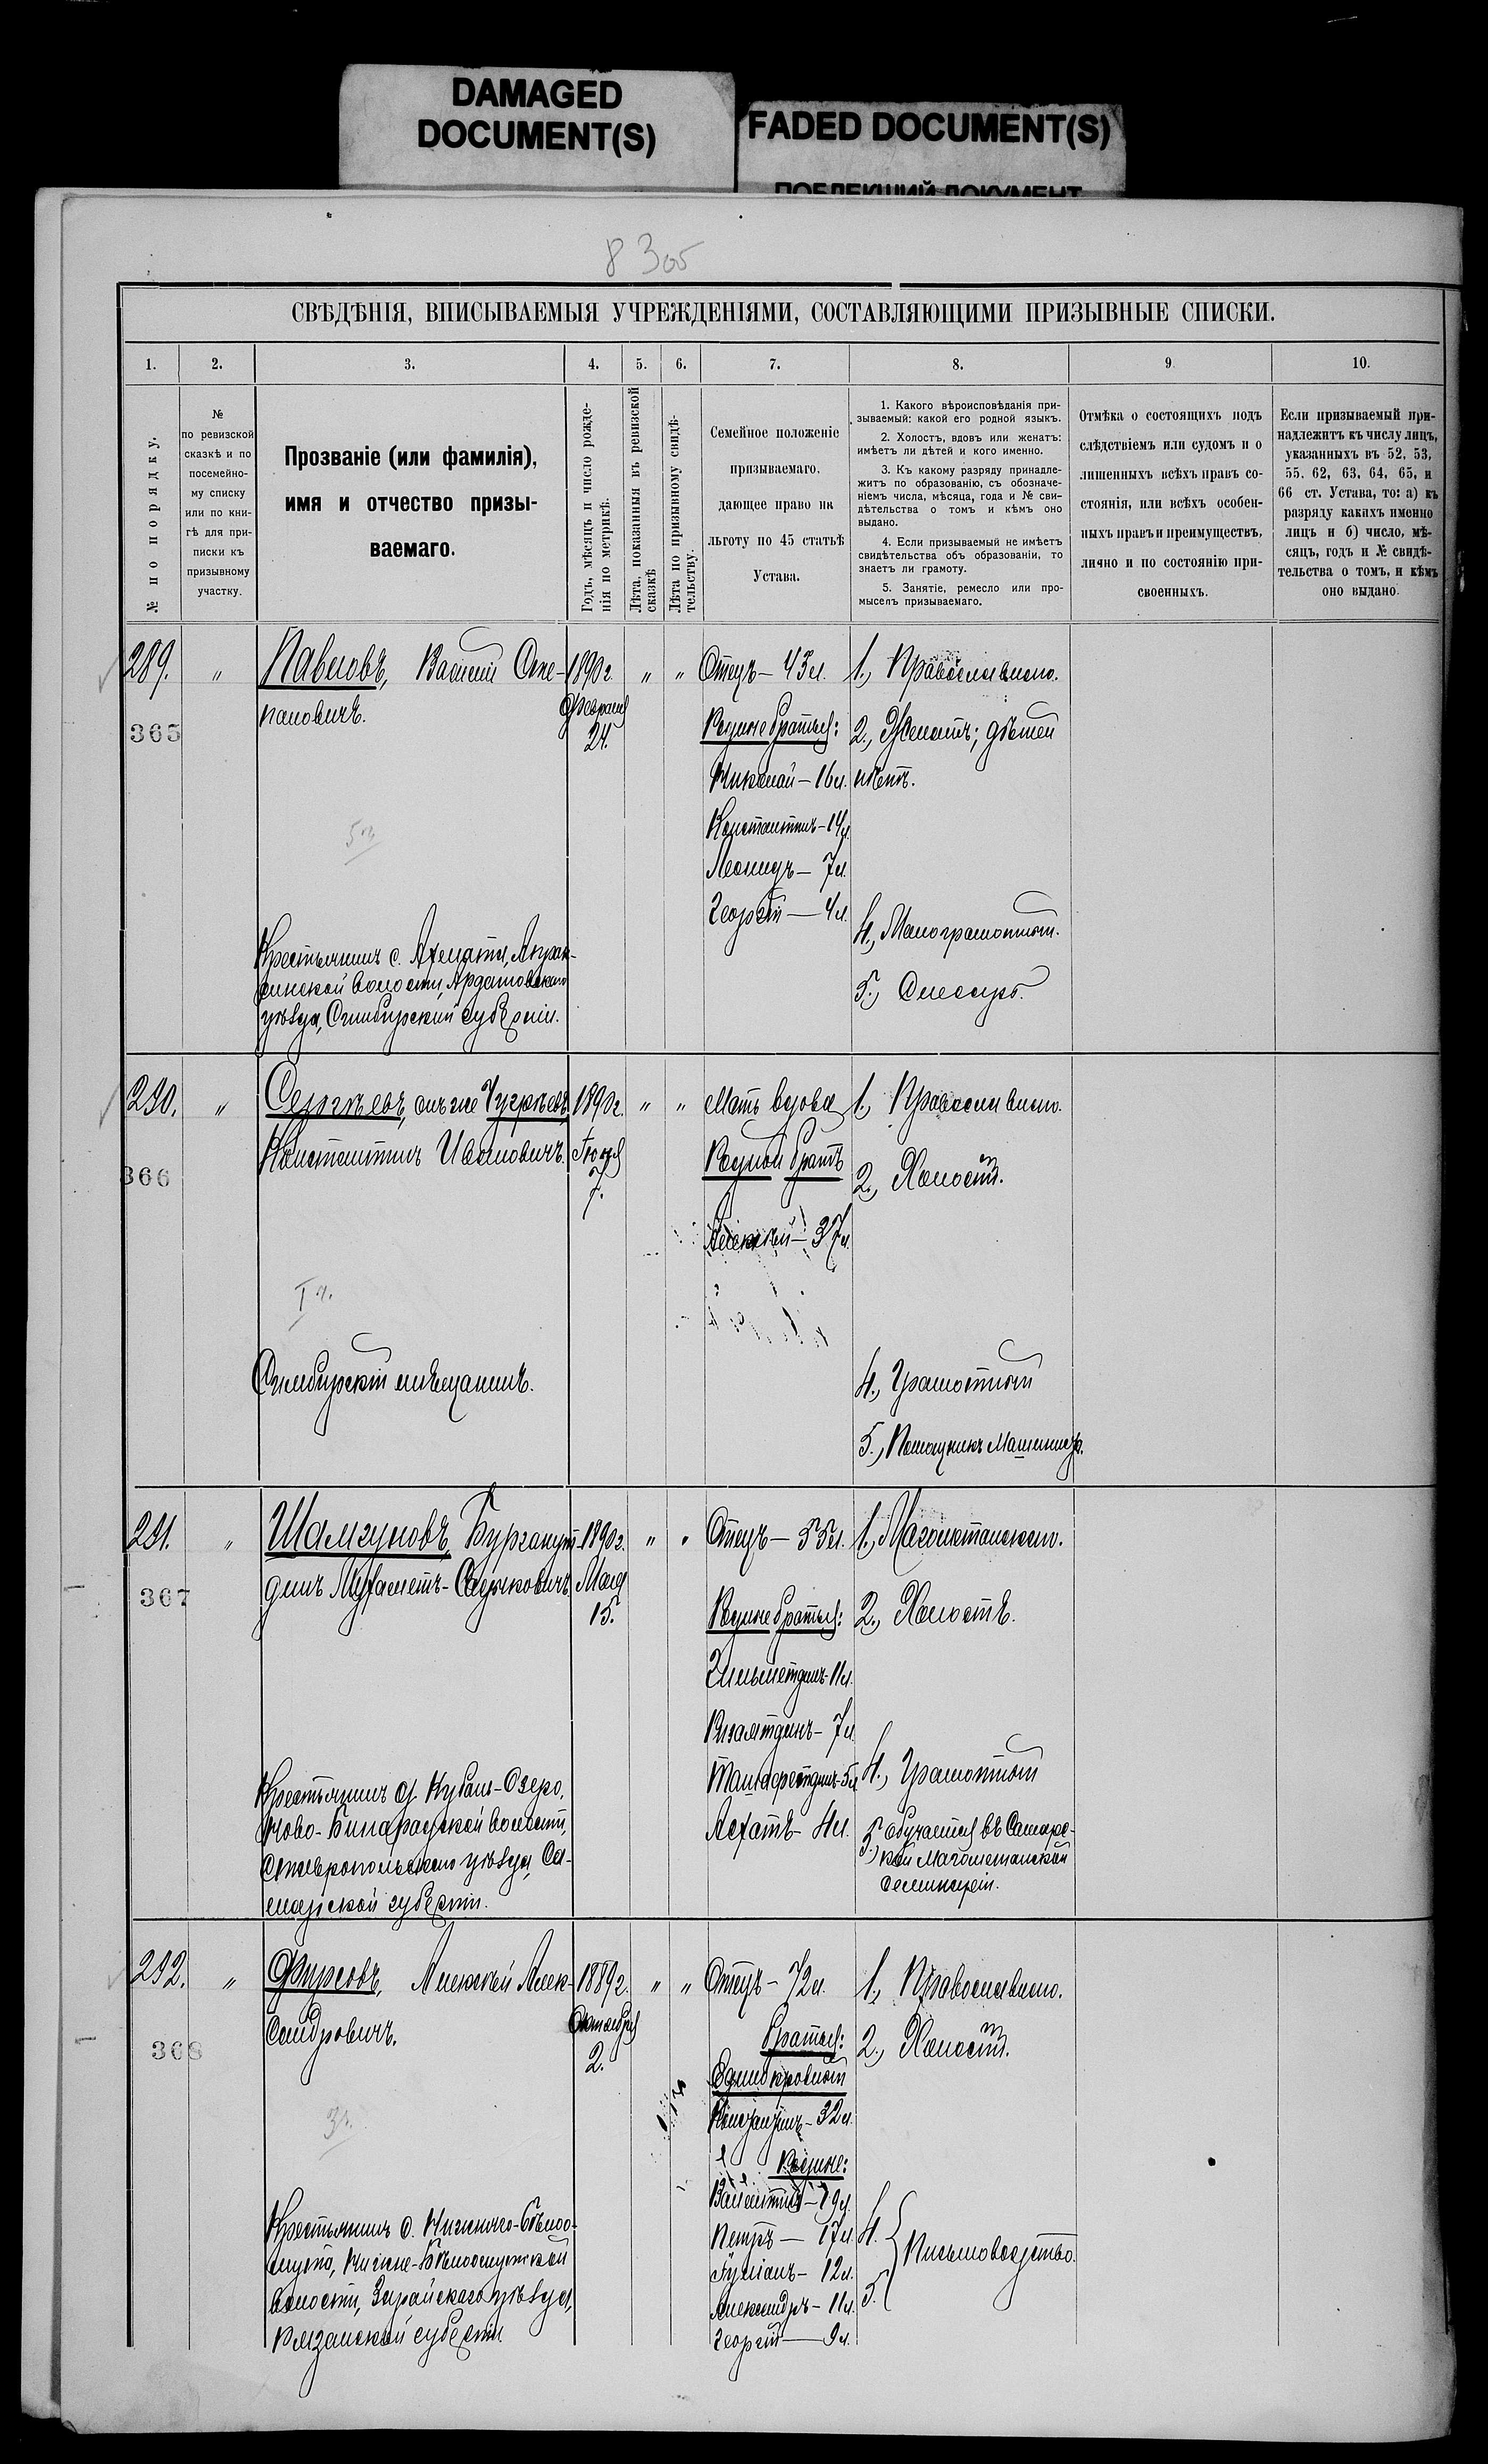 DAMAGED
DOCUMENT(S)
FADED DOCUMENT(S)
ПОБЛЕКШИЙ ДОКУМЕНТ
8 305
СВѢДѢНІЯ, ВПИСЫВАЕМЫЯ УЧРЕЖДЕНІЯМИ, СОСТАВЛЯЮЩИМИ ПРИЗЫВНЫЕ СПИСКИ.
1. 2. 3. 4. 5. 6. 7. 8. 9. 10.
№ по порядку.
№
по ревизской
сказкѣ и по
посемейно-
му списку
или по кни-
гѣ для при-
писки къ
призывному
участку.
Прозваніе (или фамилія),
имя и отчество призы-
ваемаго.
Годъ, мѣсяцъ и число рожде-
нія по метрикѣ.
Лѣта, показанныя въ ревизской
сказкѣ
Лѣта по призывному свидѣ-
тельству.
Семейное положеніе
призываемаго,
дающее право на
льготу по 45 статьѣ
Устава.
1. Какого вѣроисповѣданія при-
зываемый: какой его родной языкъ.
2. Холостъ, вдовъ или женатъ:
имѣетъ ли дѣтей и кого именно.
3. Къ какому разряду принадле-
житъ по образованію, съ обозначе-
ніемъ числа, мѣсяца, года и № сви-
дѣтельства о томъ и кѣмъ оно
выдано.
4. Если призываемый не имѣетъ
свидѣтельства объ образованіи, то
знаетъ ли грамоту.
5. Занятіе, ремесло или про-
мыселъ призываемаго.
Отмѣка о состоящихъ подъ
слѣдствіемъ или судомъ и о
лишенныхъ всѣхъ правъ со-
стоянія, или всѣхъ особен-
ныхъ правъ и преимуществъ,
лично и по состоянію при-
своенныхъ.
Если призываемый при-
надлежитъ къ числу лицъ,
указанныхъ въ 52, 53,
55, 62, 63, 64, 65, и
66 ст. Устава, то: а) къ
разряду какихъ именно
лицъ и б) число, мѣ-
сяцъ, годъ и № свидѣ-
тельства о томъ, и кѣмъ
оно выдано.
289. " Павловъ, Василій Сте-
пановичъ.
365
Крестьянинъ с. Ахматы,
синской волости, Ардатовскаго
уѣзда, Симбирской губерніи.
1890 г.
Февраля
24.
" "
Отецъ — 43 л.
Родные братья:
Николай — 16 л.
Константинъ — 14 л.
Леонидъ — 7 л.
Георгій — 4 л.
1., Православнаго.
2., Женатъ; дѣтей
нѣтъ.
4., Малограмотный.
5., Слесарь.
290. " Сергѣевъ, онъ же
Константинъ Ивановичъ.
366
I
Симбирскій мѣщанинъ.
1890 г.
7.
" "
Мать вдова
Родной братъ
Алексѣй — 37 л.
1., Православнаго.
2., Холостъ.
4., Грамотный
5., Помощникъ Машиниста.
291. " Шамгуновъ, Бурганут-
динъ Мухаметъ-Садыковичъ.
367
Крестьянинъ д. Кубань-Озеро,
Ново-Бинарадской волости,
Ставропольскаго уѣзда, Са-
марской губерніи.
1890 г.
Мая
15.
" "
Отецъ — 55 л.
Родные братья:
11 л.
Низамтдинъ — 7 л.
5 л.
Асхатъ — 4 л.
1., Магометанскаго.
2., Холостъ.
4., Грамотный
5.) обучается въ Самарс-
кой Магометанской
семинаріи.
292. " Фирсовъ, Алексѣй Алек-
сандровичъ.
368
Крестьянинъ с. Нижняго-Бѣлоо-
мута, Нижне-Бѣлоомутской
волости, Зарайскаго уѣзда,
Рязанской губерніи.
1889 г.
Октября
2.
" "
Отецъ — 72 л.
Братья:
Единокровный
32 л.
Родные:
Валентинъ — 19 л.
Петръ — 17 л.
Іуліанъ — 12 л.
Александръ — 11 л.
Георгій — 9 л.
1., Православнаго.
2., Холостъ.
4.
Письмоводство.
5.